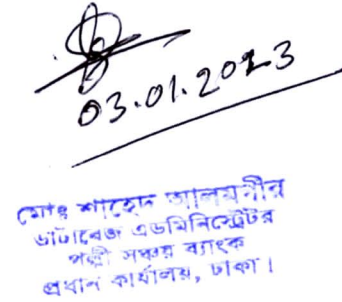 03.01.2023
মোঃ শাহেদ আলমগীর
ডাটাবেজ এডমিনিস্ট্রেটর
পল্লী সঞ্চয় ব্যাংক
প্রধান কার্যালয়, ঢাকা।